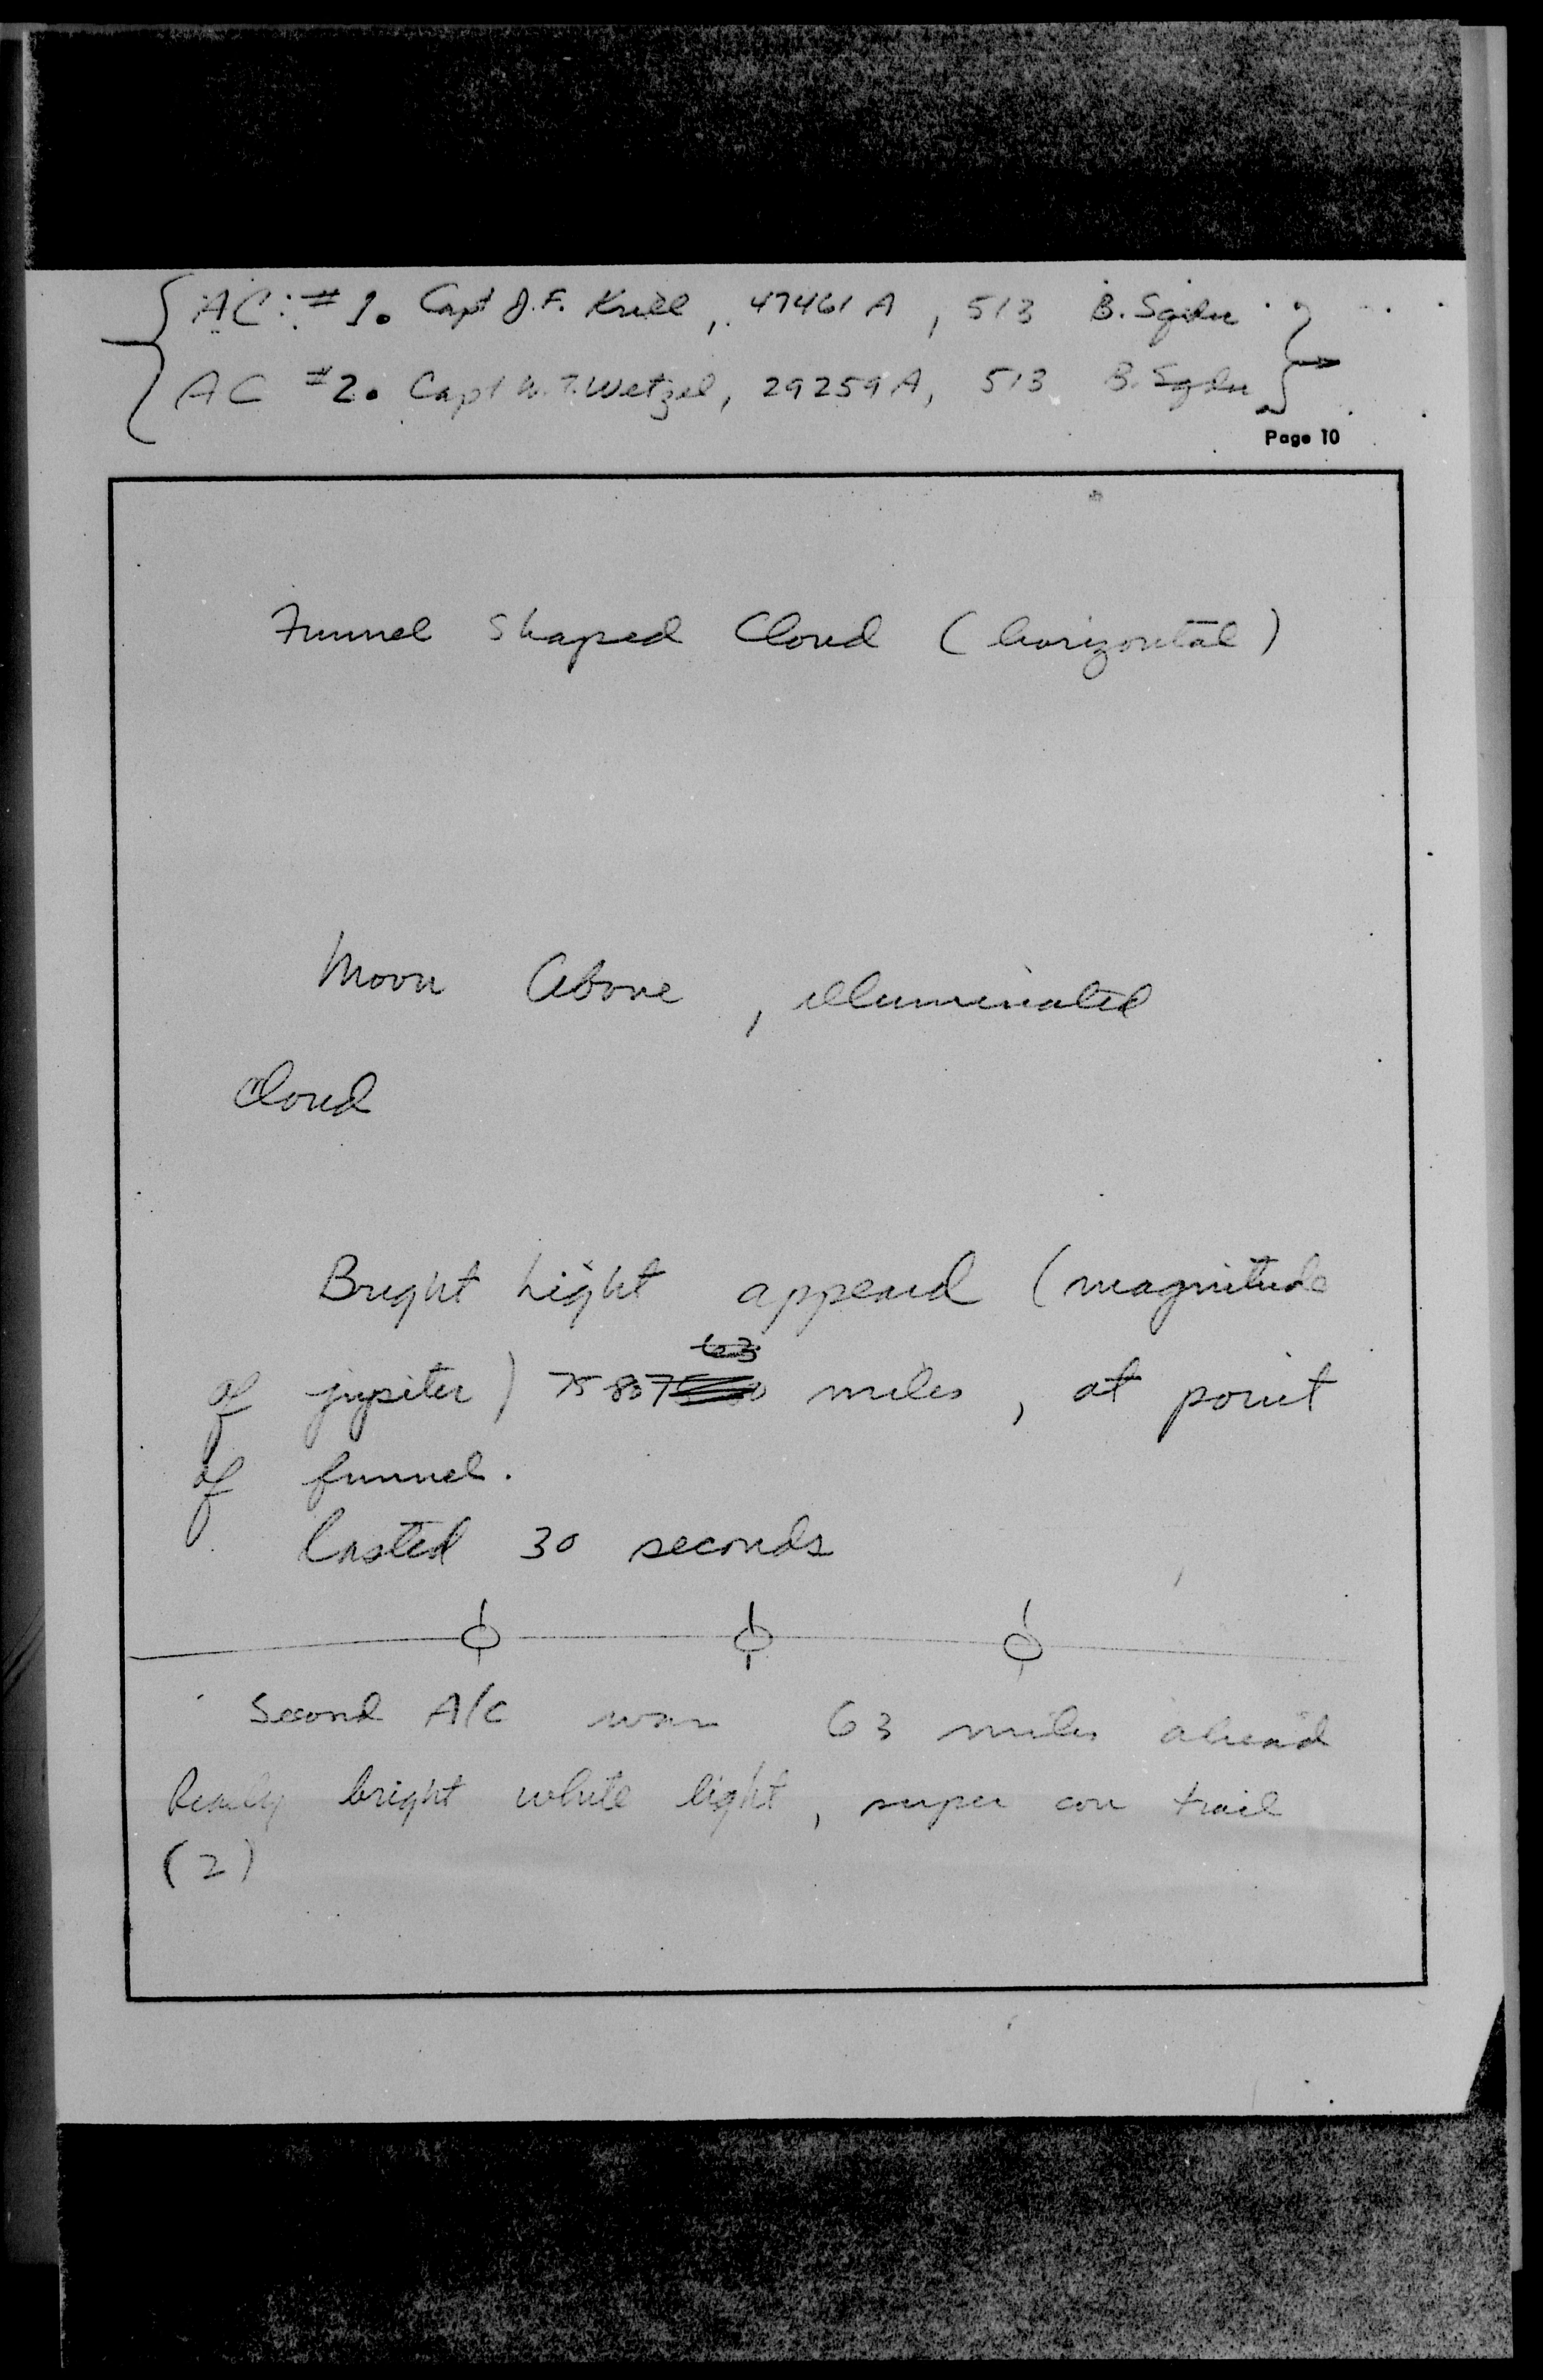 AC: #1. Capt J.F. Krill, 47461A, 513 B. Sqdn
AC #2. Capt W.T. Wetzel, 29259A, 513 B. Sqdn
Page 10
Funnel Shaped Cloud (horizontal)
Moon Above, illuminated
cloud
Bright Light appeard (magnitude
63
of jupiter) 75 80 miles, at point
of funnel.
lasted 30 seconds
Second A/C was 63 miles ahead
Really bright white light, super con trail
(2)